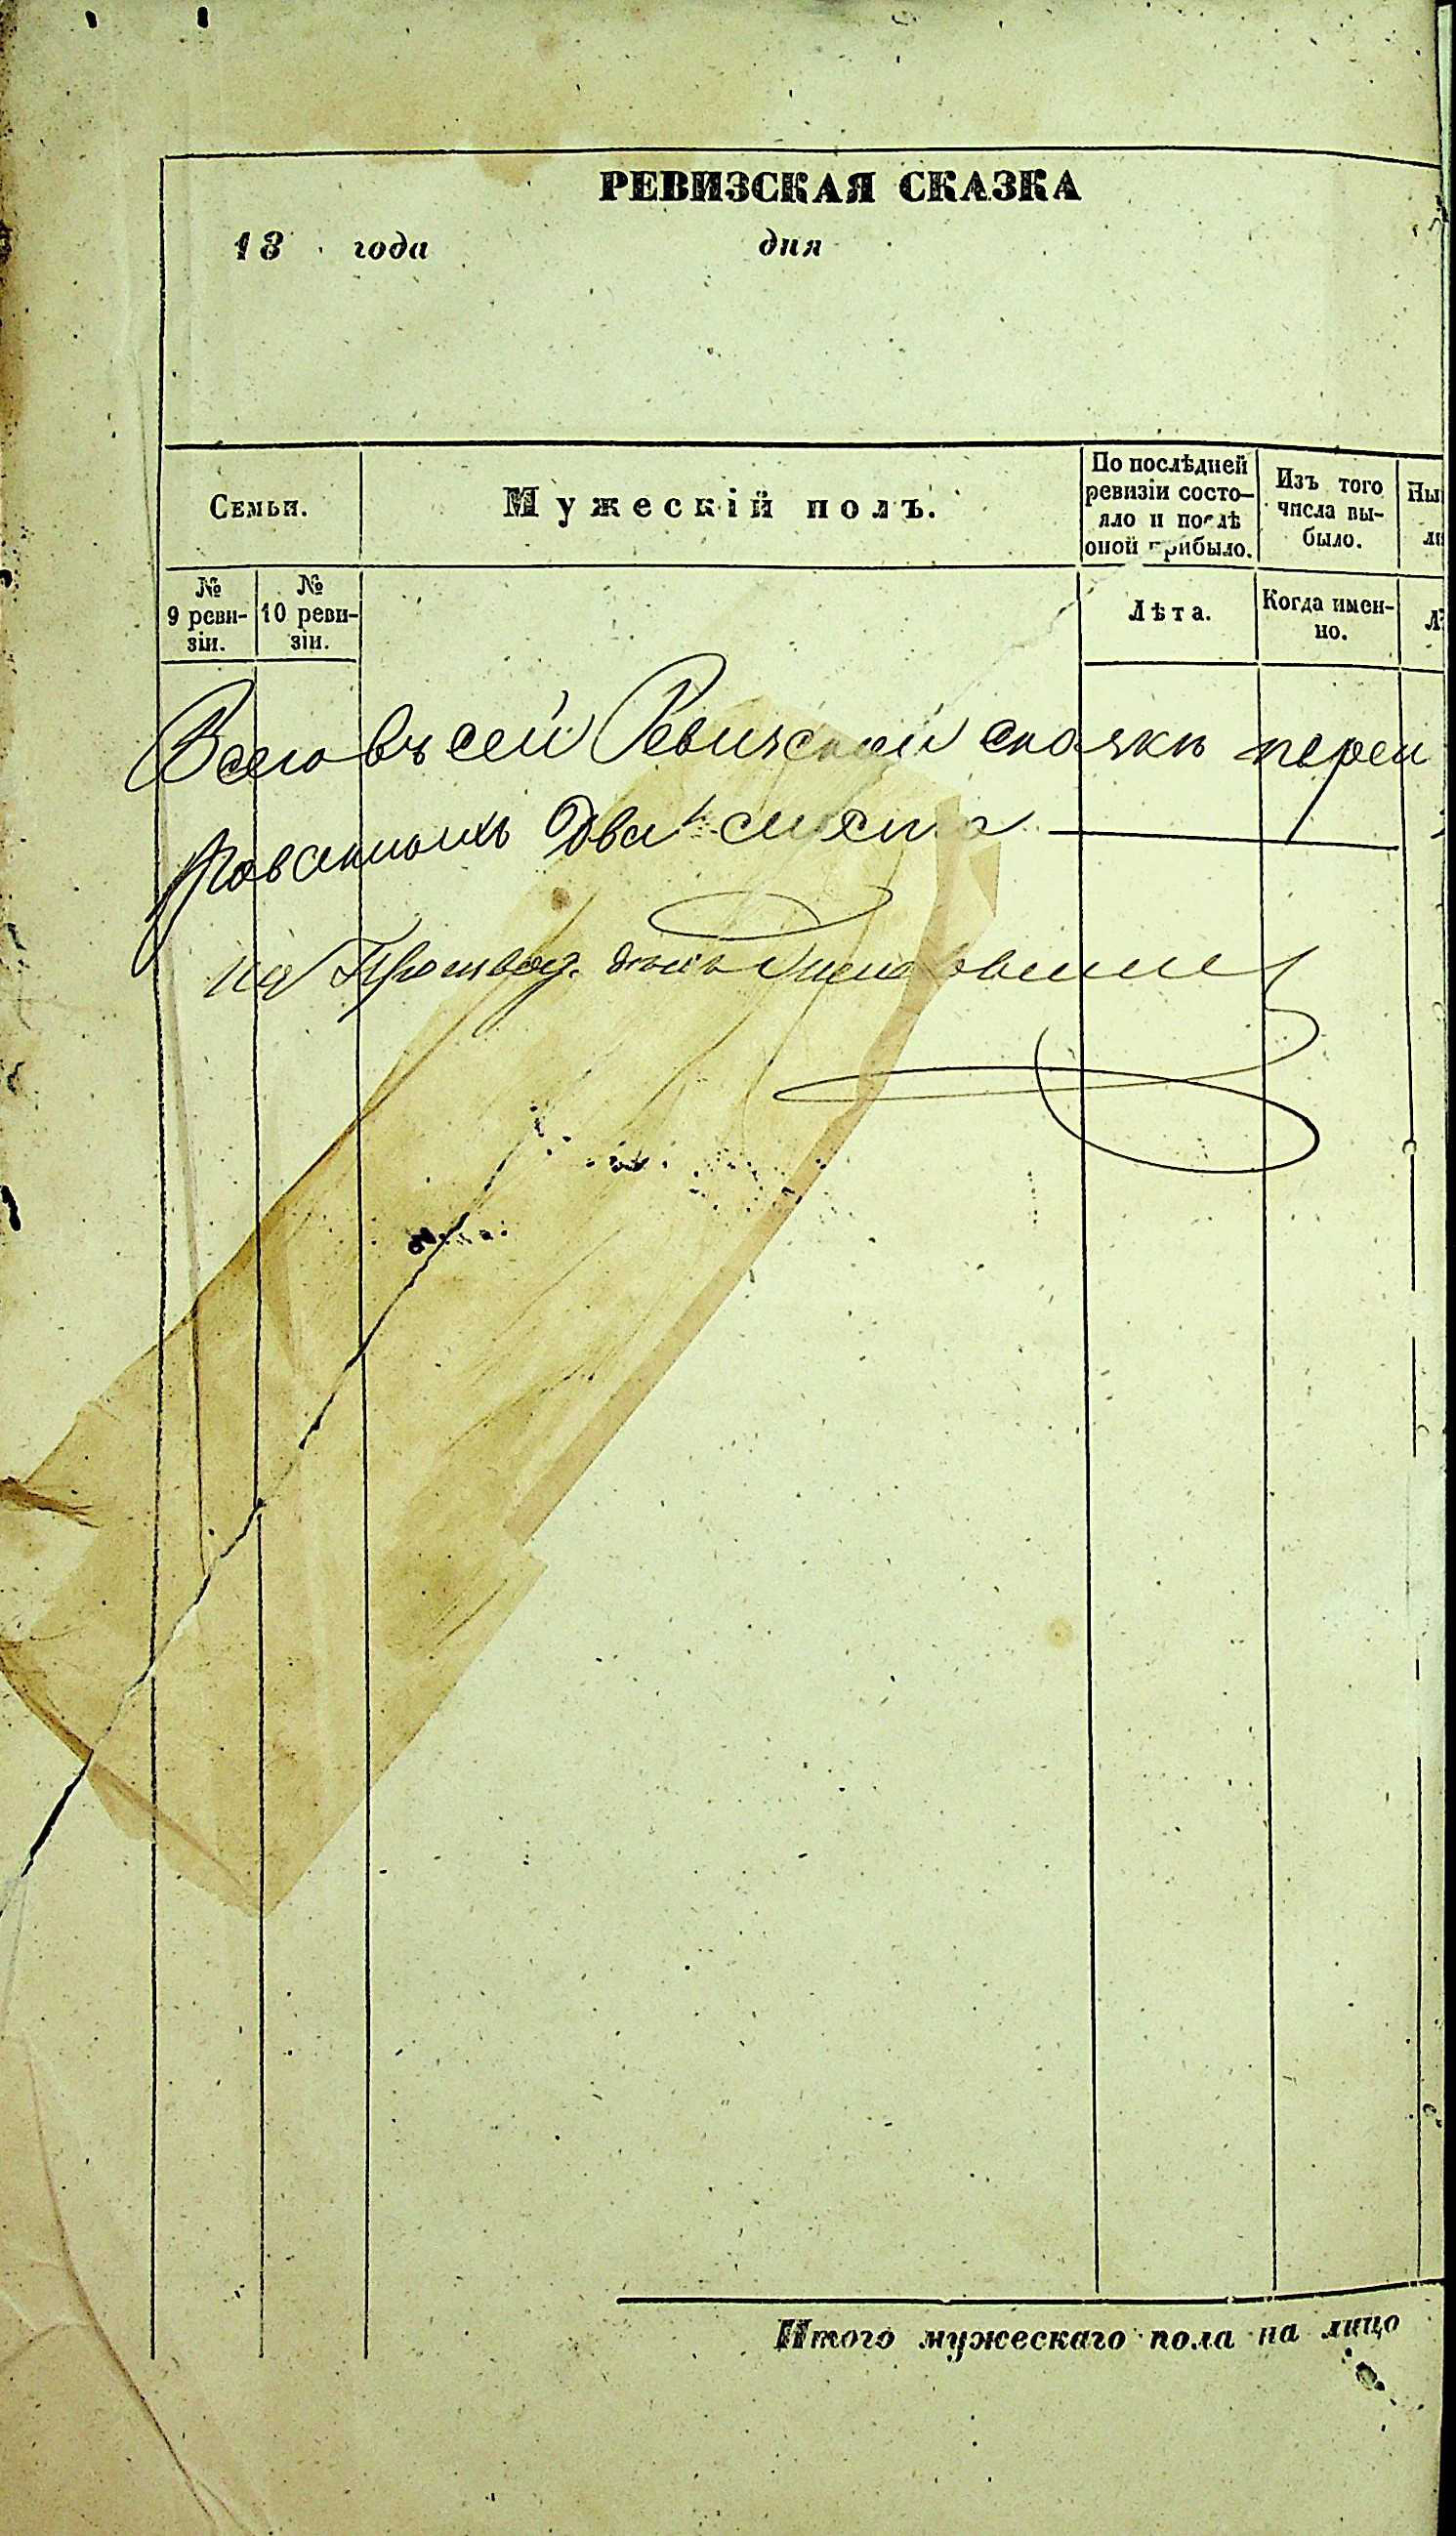 РЕВИЗСКАЯ СКАЗКА
18 года дня
Семьи.
Мужескій полъ.
По послѣдней
ревизіи состо-
яло и послѣ
оной прибыло.
Изъ того
числа вы-
было.
Ны
ли
№
9 реви-
зіи.
№
10 реви-
зіи.
Лѣта.
Когда имен-
но.
Лѣ
Всего въ сей Ревизской сказкѣ
два листа
Итого мужескаго пола на лицо